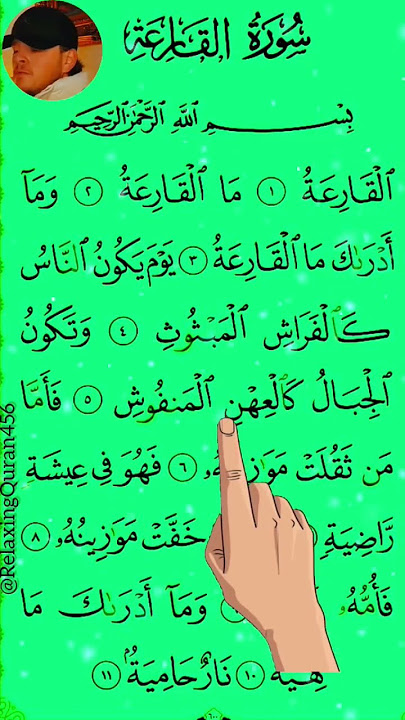 سُورَةُ القَارِعَةِ
بِسْمِ ٱللَّهِ ٱلرَّحْمَٰنِ ٱلرَّحِيمِ
ٱلْقَارِعَةُ ١ مَا ٱلْقَارِعَةُ ٢ وَمَآ
أَدْرَىٰكَ مَا ٱلْقَارِعَةُ ٣ يَوْمَ يَكُونُ ٱلنَّاسُ
كَٱلْفَرَاشِ ٱلْمَبْثُوثِ ٤ وَتَكُونُ
ٱلْجِبَالُ كَٱلْعِهْنِ ٱلْمَنفُوشِ ٥ فَأَمَّا
مَن ثَقُلَتْ ٦ فَهُوَ فِى عِيشَةٍ
رَّاضِيَةٍ خَفَّتْ مَوَٰزِينُهُۥ ٨
فَأُمُّهُۥ وَمَآ أَدْرَىٰكَ مَا
هِيَهْ ١٠ نَارٌ حَامِيَةٌۢ ١١
@RelaxingQuran456